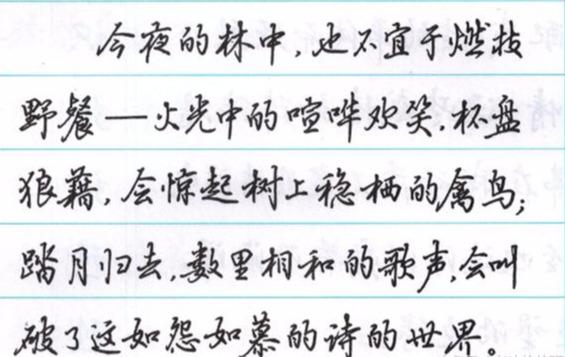 今夜的林中,也不宜于燃枝
野餐—火光中的喧哗欢笑,杯盘
狼藉,会惊起树上稳栖的禽鸟;
踏月归去,数里相和的歌声,会叫
破了这如怨如慕的诗的世界。